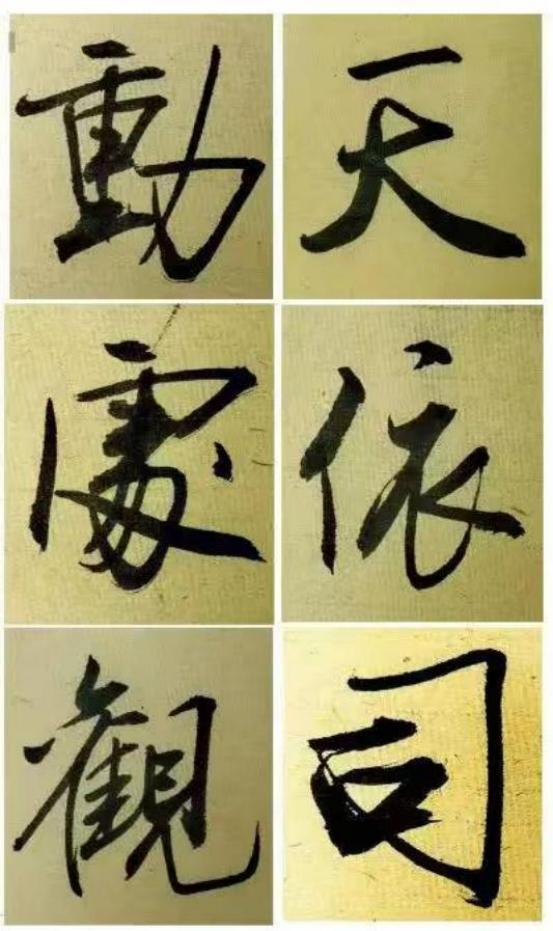 天依司
動處觀